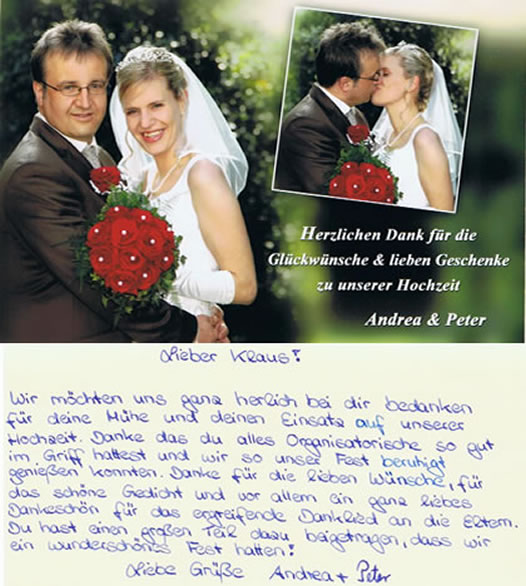 Herzlichen Dank für die
Glückwünsche & lieben Geschenke
zu unserer Hochzeit
Andrea & Peter
Lieber Klaus!
Wir möchten uns ganz herlich bei dir bedanken
für deine Mühe und deinen Einsatz auf unserer
Hochzeit. Danke das du alles Organisatorische so gut
im Griff hattest und wir so unser Fest beruhigt
genießen konnten. Danke für die lieben Wünsche, für
das schöne Gedicht und vor allem ein ganz liebes
Dankeschön für das ergreifende Danklied an die Eltern.
Du hast einen großen Teil dazu beigetragen, dass wir
ein wunderschönes Fest hatten!
Liebe Grüße Andrea + Peter